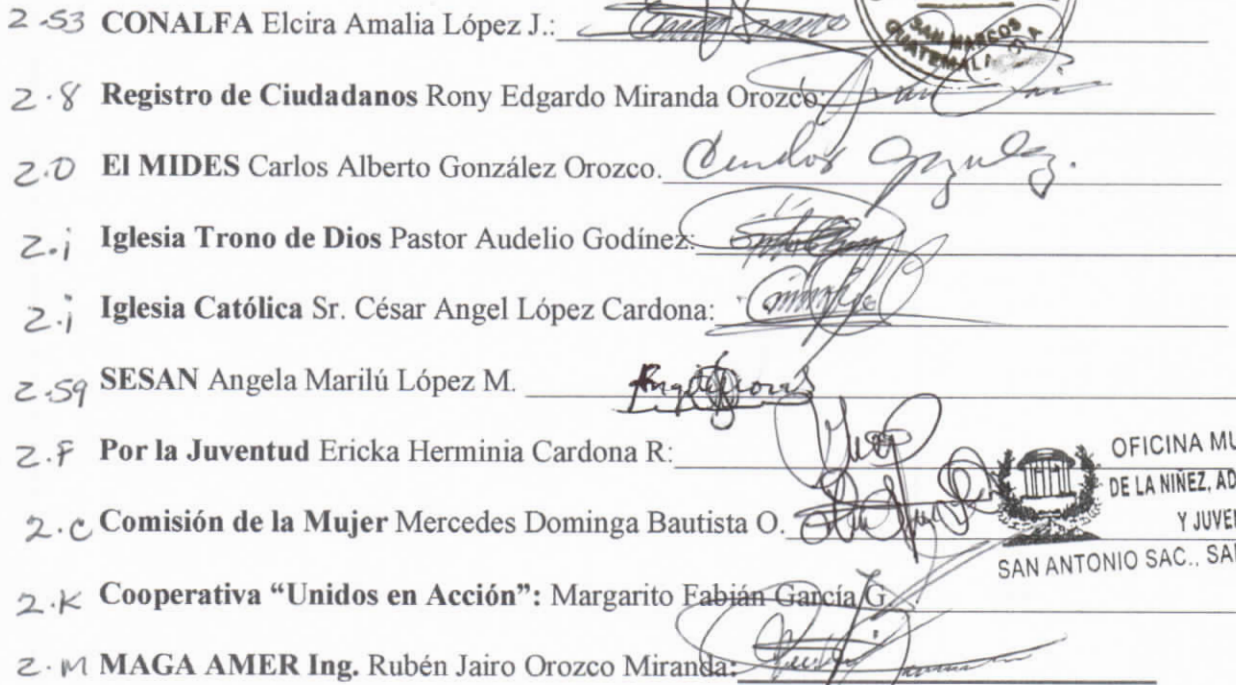 2-53 CONALFA Elcira Amalia López J.:
SAN MARCOS
GUATEMALA
2.8 Registro de Ciudadanos Rony Edgardo Miranda Orozco:
2.D El MIDES Carlos Alberto González Orozco.
2.i Iglesia Trono de Dios Pastor Audelio Godínez:
2.i Iglesia Católica Sr. César Angel López Cardona:
2.59 SESAN Angela Marilú López M.
2.F Por la Juventud Ericka Herminia Cardona R:
OFICINA MU
DE LA NIÑEZ, AD
Y JUVE
SAN ANTONIO SAC., SA
2.c Comisión de la Mujer Mercedes Dominga Bautista O.
2.K Cooperativa “Unidos en Acción”: Margarito Fabián García G
2.M MAGA AMER Ing. Rubén Jairo Orozco Miranda: